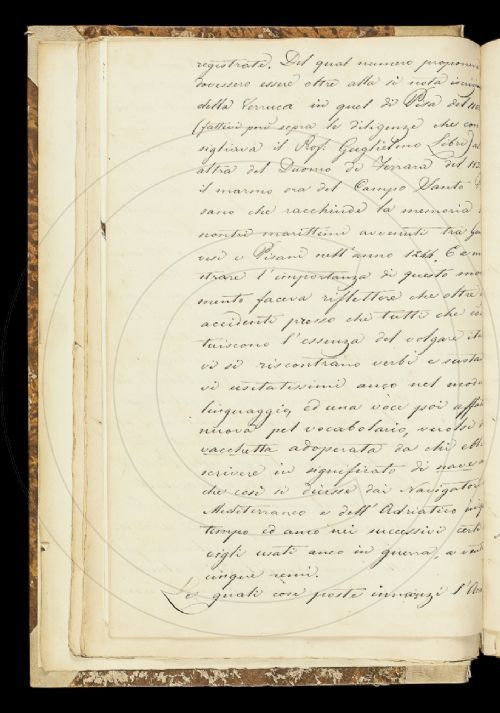 registrate. Del qual numero proponeva
dovessero essere oltre alla sì nota iscrizi
della Verruca in quel di Pisa del
(fattevi però sopra le diligenze che con
sigliava il Prof. Guglielmo Libri) al
altra del Duomo di Ferrara del 113
il marmo ora del Campo Santo
sano che racchiude la memoria
scontri marittimi avvenuti tra Gen
vesi e Pisani nell'anno 1244. E a m
strare l'importanza di questo mo
mento faceva riflettere che oltre
accidenti presso che tutti che co
tuiscono l'essenza del volgare ita
vi si riscontrano verbi e susta
vi usitatissimi anco nel mode
linguaggio, ed una voce poi affa
nuova pel vocabolario, verosi
vacchetta adoperata da chi ebb
scrivere in significato di nave o
che così si dicesse dai Navigator
Mediterraneo e dell'Adriatico
tempo ed anco nei successivi certi
vigli usati anco in guerra, a vent
cinque remi.
Le quali cose poste innanzi l'